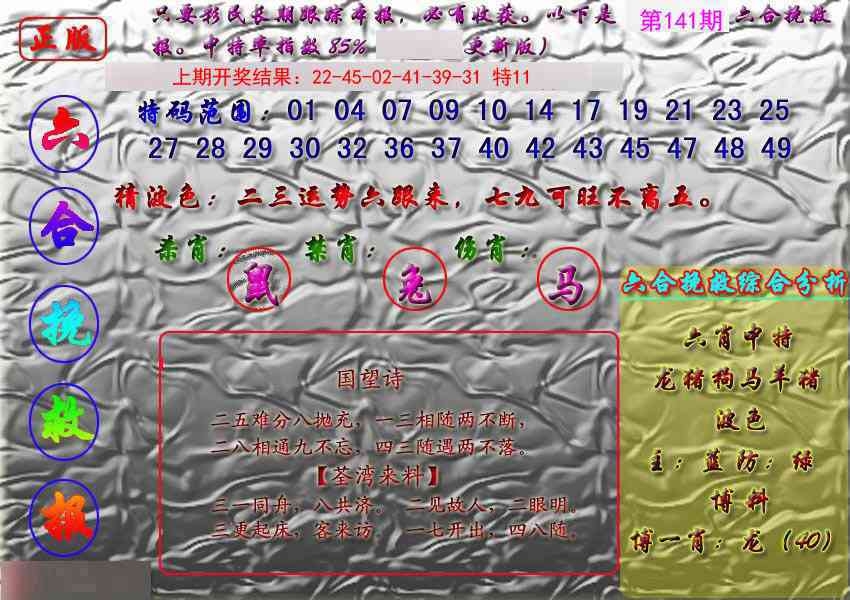 正版
只要彩民长期跟踪本报，必有收获。以下是 第141期 六合挽救
报。中特率指数85% 更新版）
上期开奖结果：22-45-02-41-39-31 特11
特码范围：01 04 07 09 10 14 17 19 21 23 25
27 28 29 30 32 36 37 40 42 43 45 47 48 49
猜波色：二三运势六跟来，七九可旺不离五。
杀肖：鼠 禁肖：兔 伤肖：马
六合挽救报
国望诗
二五难分八抛充，一三相随两不断，
二八相通九不忘，四三随遇两不落。
【荃湾来料】
三一同舟，八共济。 二见故人，二眼明。
三更起床，客来访。 一七开出，四八随。
六合挽救综合分析
六肖中特
龙猪狗马羊猪
波色
主：蓝防：绿
博料
博一肖：龙（40）